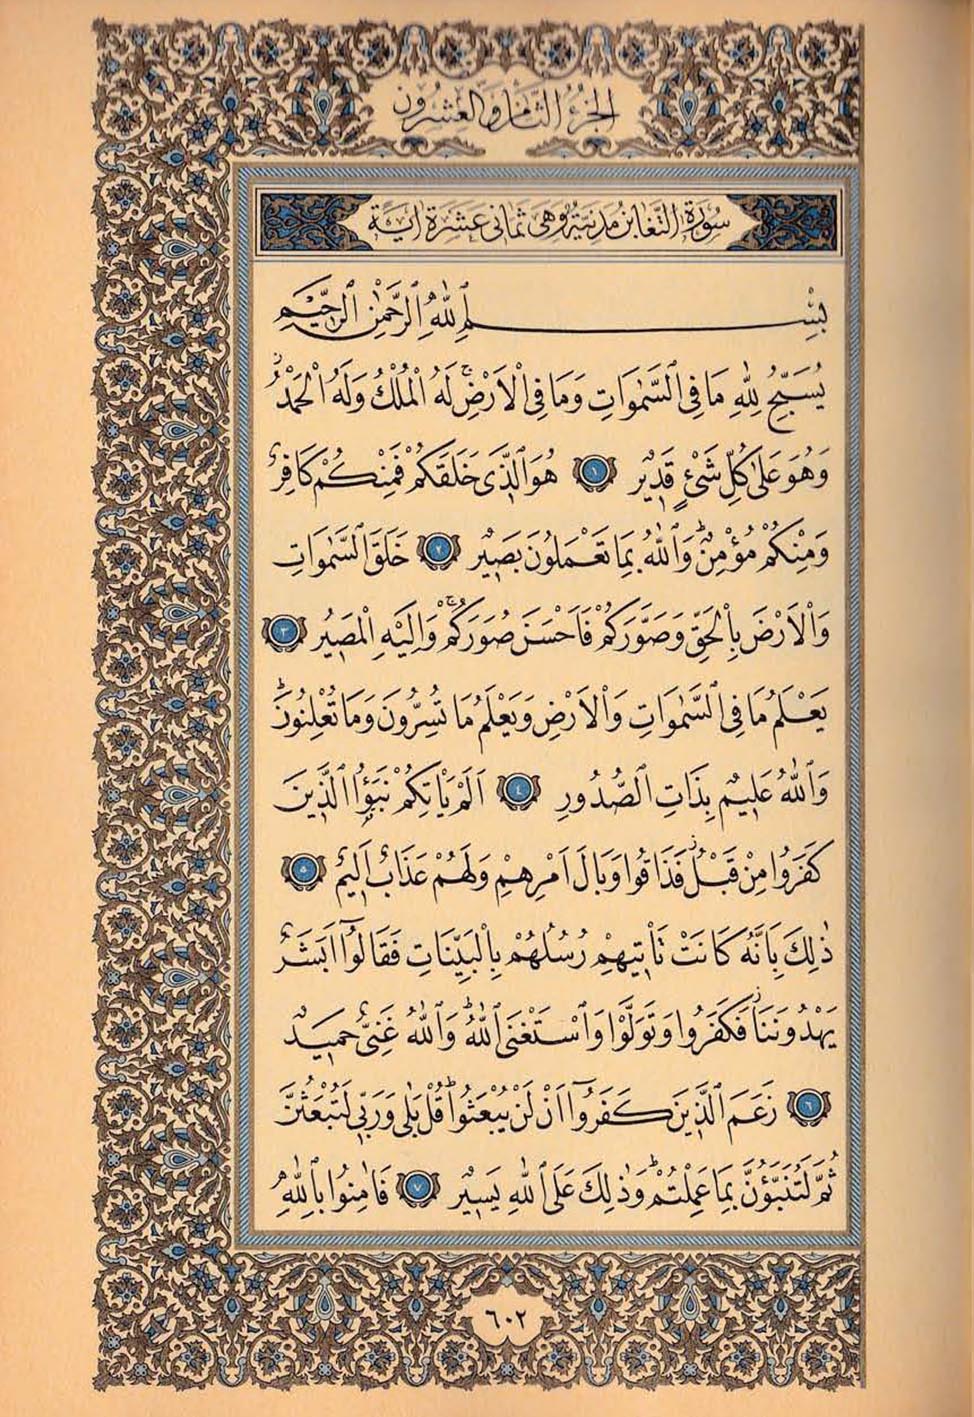 الجزء الثامن والعشرون
سُورَةُ التَّغَابُنِ مَدَنِيَّةٌ وَهِيَ ثَمَانِي عَشَرَةَ اٰيَةً
بِسْمِ اللّٰهِ الرَّحْمٰنِ الرَّحِيمِ
يُسَبِّحُ لِلّٰهِ مَا فِى السَّمٰوَاتِ وَمَا فِى الْاَرْضِۚ لَهُ الْمُلْكُ وَلَهُ الْحَمْدُۘ
وَهُوَ عَلٰى كُلِّ شَىْءٍ قَد۪يرٌ ﴿١﴾ هُوَ الَّذ۪ى خَلَقَكُمْ فَمِنْكُمْ كَافِرٌ
وَمِنْكُمْ مُؤْمِنٌۜ وَاللّٰهُ بِمَا تَعْمَلُونَ بَص۪يرٌ ﴿٢﴾ خَلَقَ السَّمٰوَاتِ
وَالْاَرْضَ بِالْحَقِّ وَصَوَّرَكُمْ فَاَحْسَنَ صُوَرَكُمْۚ وَاِلَيْهِ الْمَص۪يرُ ﴿٣﴾
يَعْلَمُ مَا فِى السَّمٰوَاتِ وَالْاَرْضِ وَيَعْلَمُ مَا تُسِرُّونَ وَمَا تُعْلِنُونَۜ
وَاللّٰهُ عَل۪يمٌ بِذَاتِ الصُّدُورِ ﴿٤﴾ اَلَمْ يَأْتِكُمْ نَبَؤُا الَّذ۪ينَ
كَفَرُوا مِنْ قَبْلُۘ فَذَاقُوا وَبَالَ اَمْرِهِمْ وَلَهُمْ عَذَابٌ اَل۪يمٌ ﴿٥﴾
ذٰلِكَ بِاَنَّهُ كَانَتْ تَأْت۪يهِمْ رُسُلُهُمْ بِالْبَيِّنَاتِ فَقَالُٓوا اَبَشَرٌ
يَهْدُونَنَاۘ فَكَفَرُوا وَتَوَلَّوْا وَاسْتَغْنَى اللّٰهُۜ وَاللّٰهُ غَنِىٌّ حَم۪يدٌ
﴿٦﴾ زَعَمَ الَّذ۪ينَ كَفَرُٓوا اَنْ لَنْ يُبْعَثُواۜ قُلْ بَلٰى وَرَبّ۪ى لَتُبْعَثُنَّ
ثُمَّ لَتُنَبَّؤُنَّ بِمَا عَمِلْتُمْۜ وَذٰلِكَ عَلَى اللّٰهِ يَس۪يرٌ ﴿٧﴾ فَاٰمِنُوا بِاللّٰهِ
٦٠٢